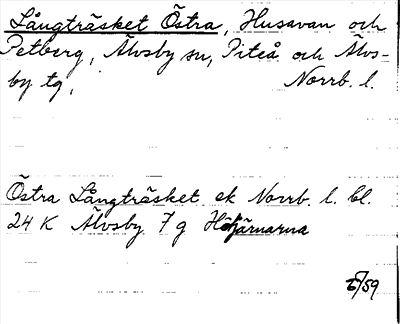 Långträsket Östra, Husavan och
Petberg, Älvsby sn, Piteå och Älvs-
by tg, Norrb. l.
Östra Långträsket ek Norrb. l. bl.
24 K Älvsby 7 g Höjärnarna
/59